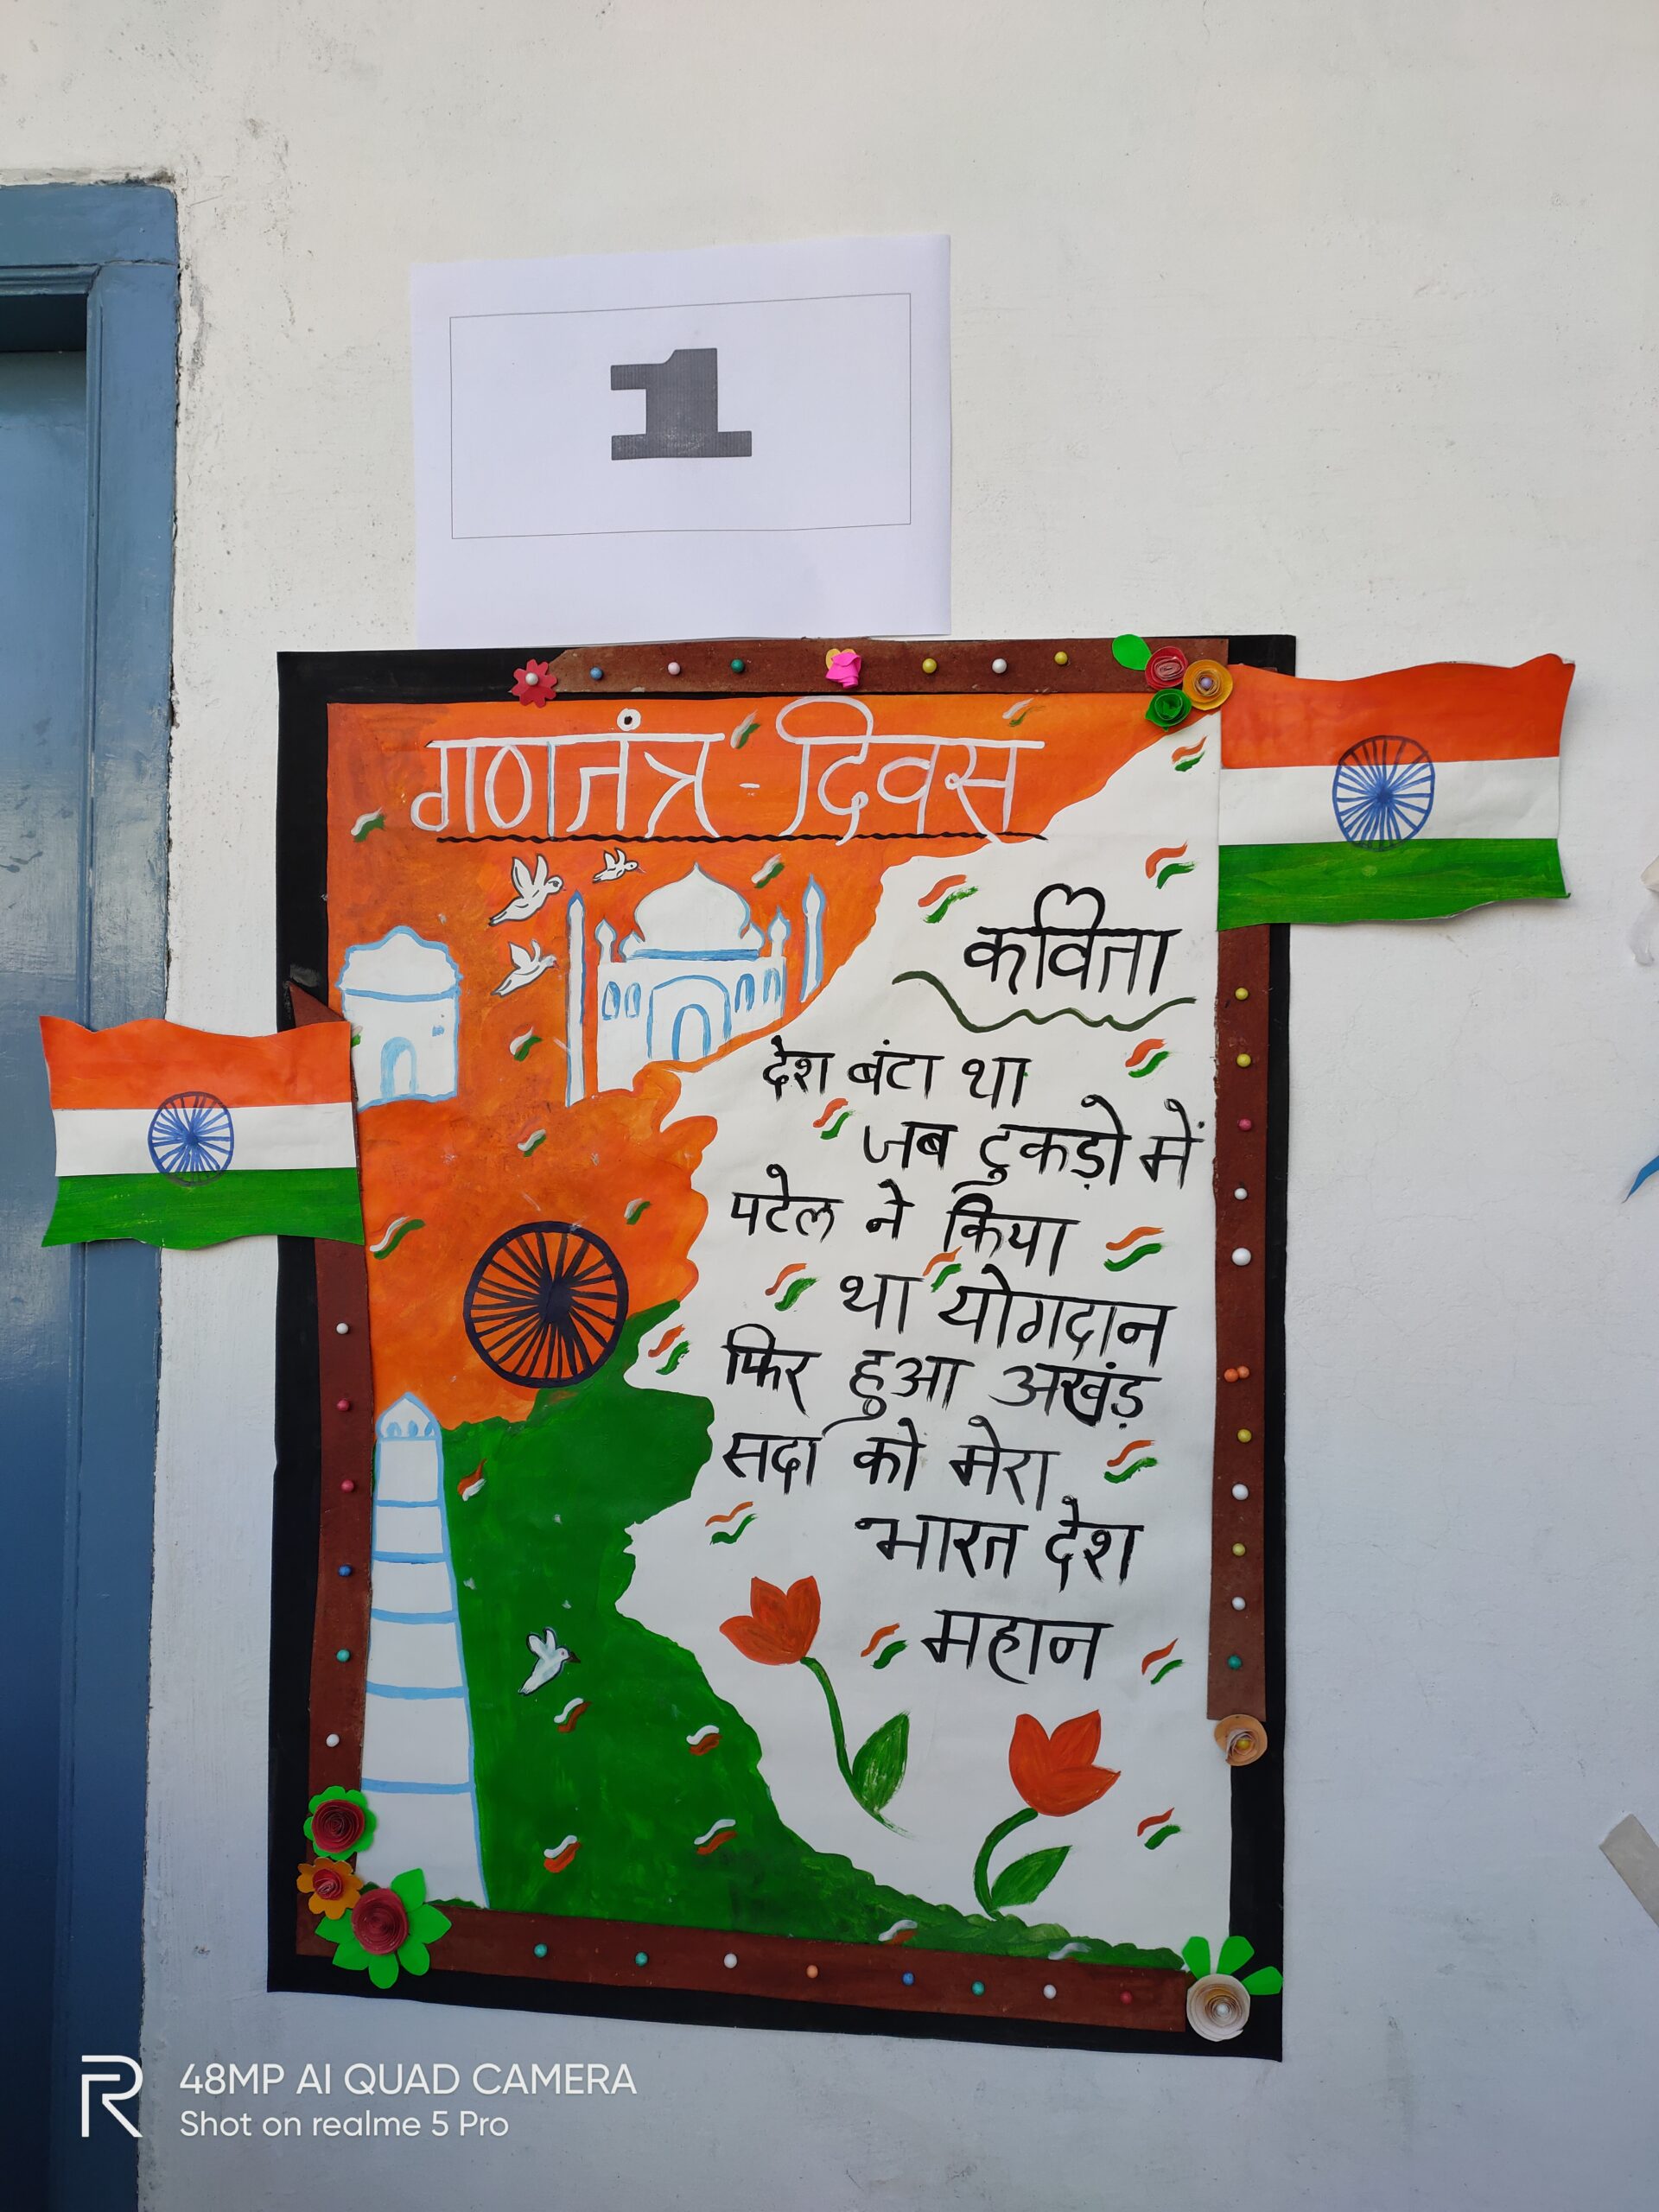 1
गणतंत्र - दिवस
कविता
देश बंटा था
जब टुकड़ो में
पटेल ने किया
था योगदान
फिर हुआ अखंड़
सदा को मेरा
भारत देश
महान
48MP AI QUAD CAMERA
Shot on realme 5 Pro